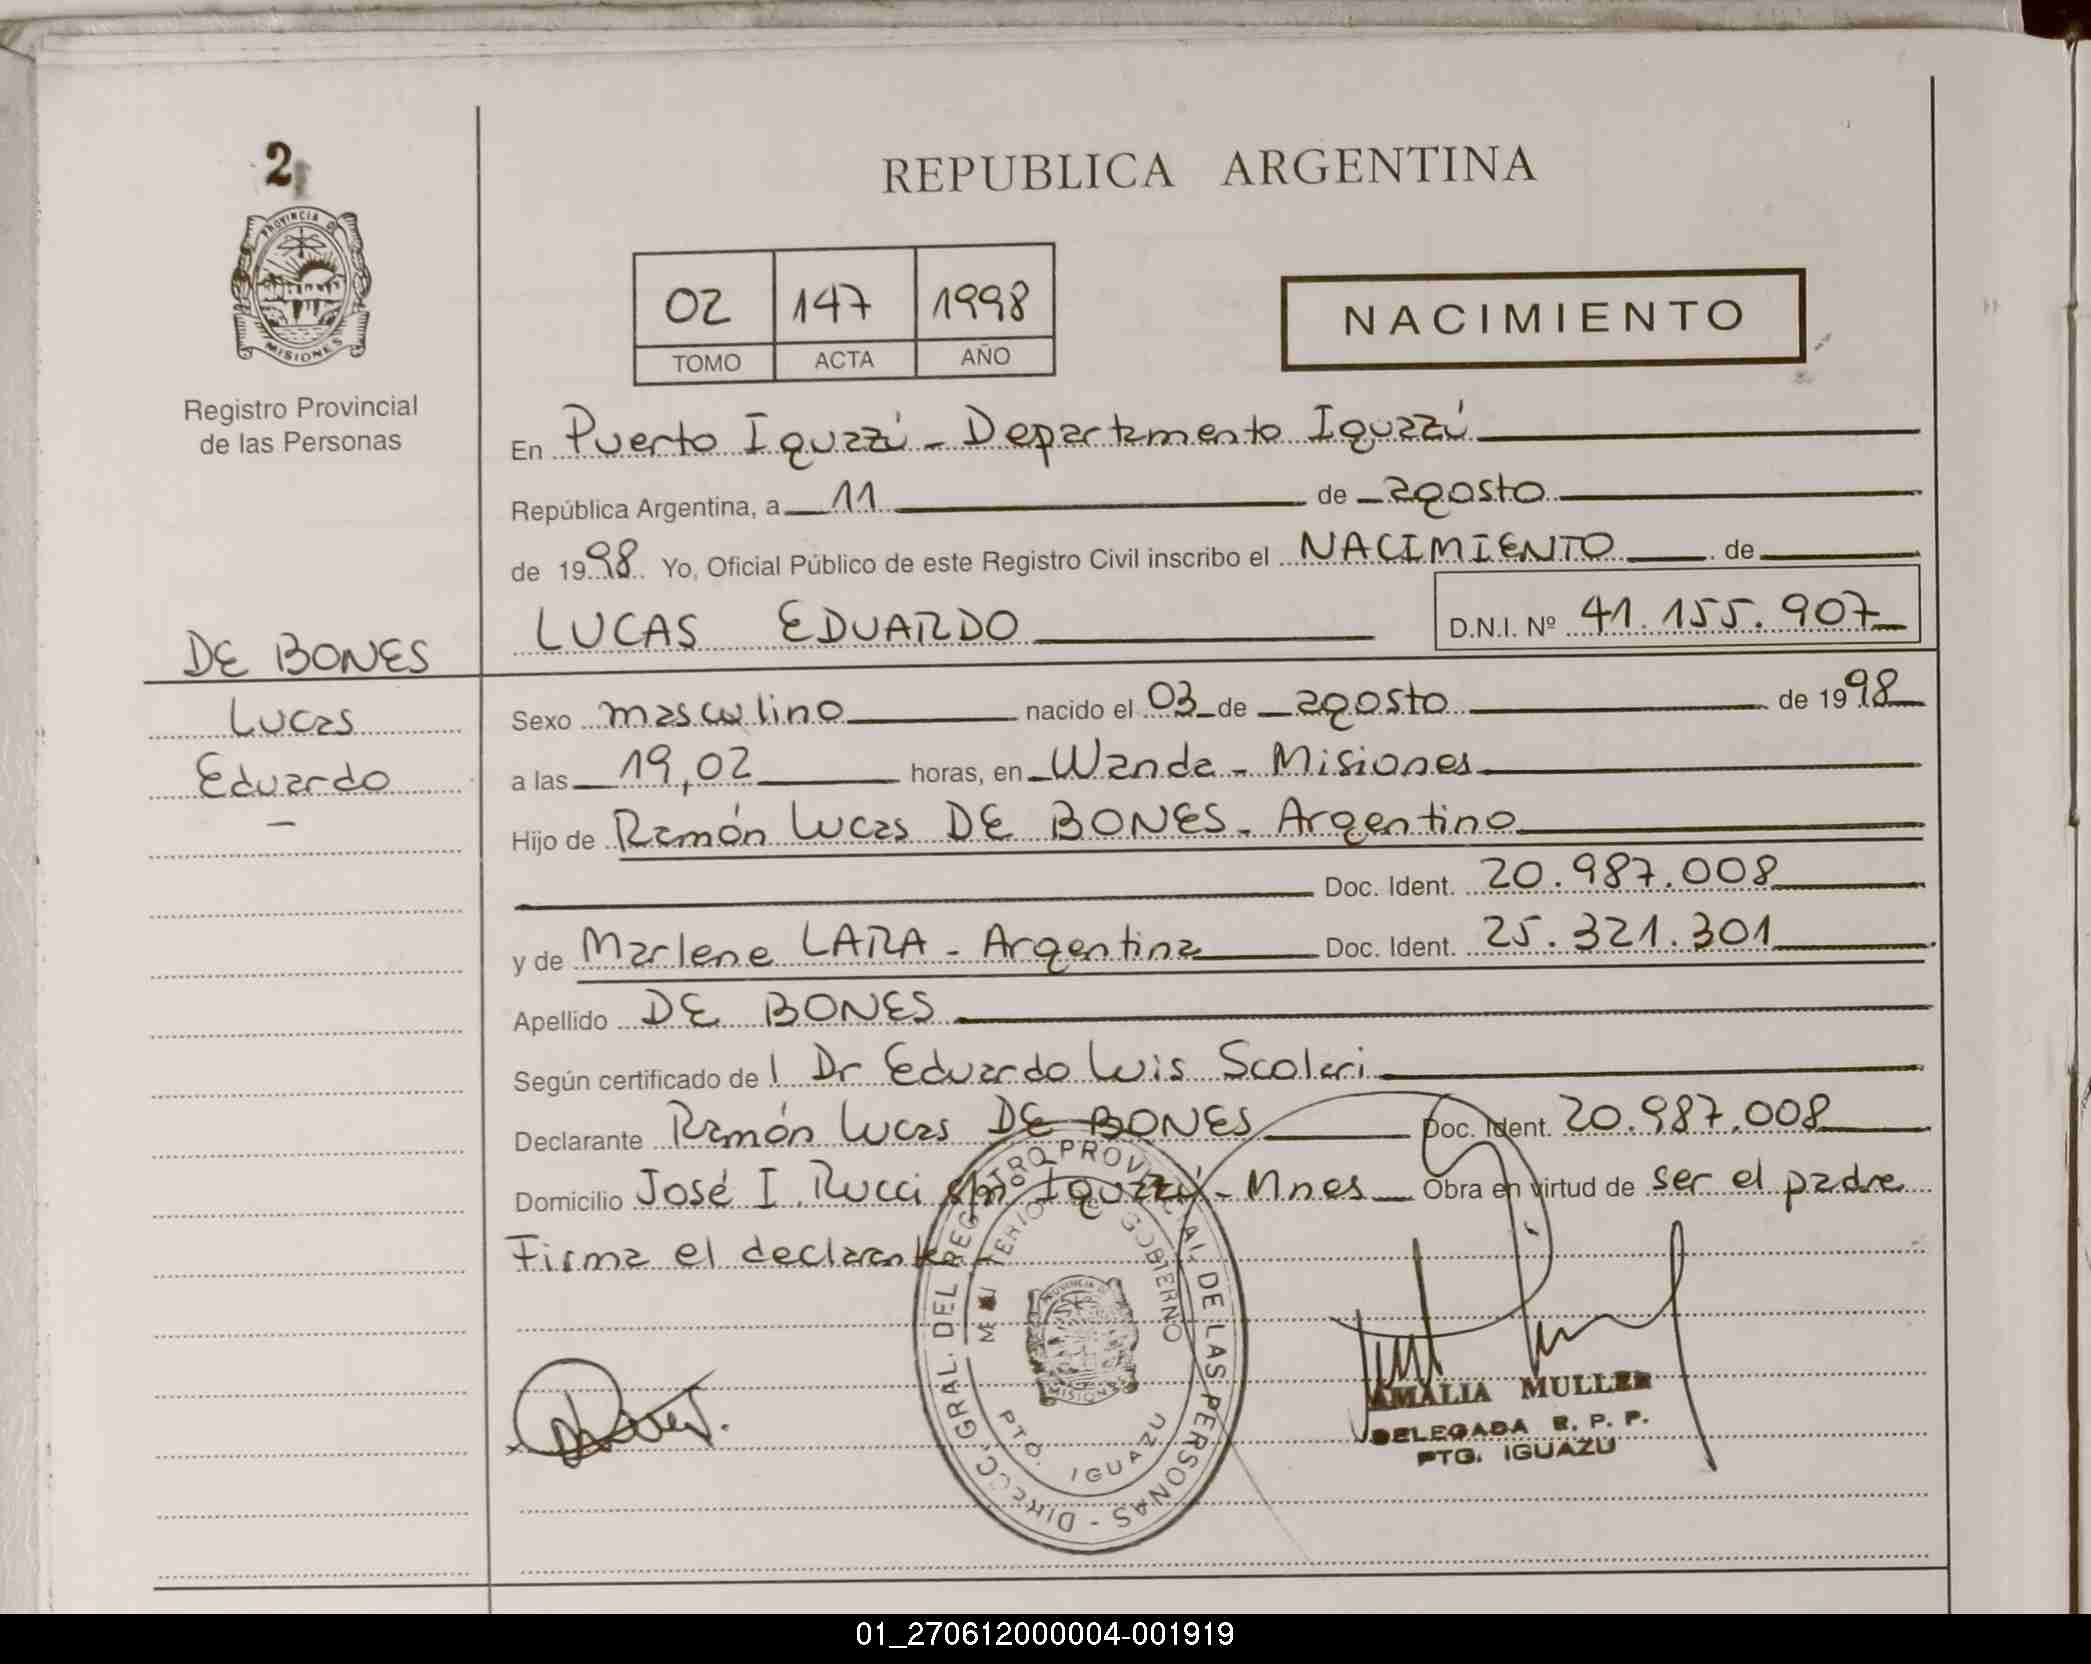 2
PROVINCIA DE
MISIONES
Registro Provincial
de las Personas
REPUBLICA ARGENTINA
02 147 1998
TOMO ACTA AÑO
NACIMIENTO
En Puerto Iguazú - Departamento Iguazú
República Argentina, a 11 de agosto
de 1998 Yo, Oficial Público de este Registro Civil inscribo el NACIMIENTO de
LUCAS EDUARDO D.N.I. Nº 41.155.907
DE BONES
Lucas
Eduardo
Sexo masculino nacido el 03 de agosto de 1998
a las 19,02 horas, en Wanda - Misiones
Hijo de Ramón Lucas DE BONES - Argentino
Doc. Ident. 20.987.008
y de Marlene LARA - Argentina Doc. Ident. 25.321.301
Apellido DE BONES
Según certificado de l Dr Eduardo Luis Scolari
Declarante Ramón Lucas DE BONES Doc. Ident. 20.987.008
Domicilio José I. Rucci s/nº Iguazú - Mnes Obra en virtud de ser el padre
Firma el declarante
DIRECC. GRAL. DEL REGISTRO PROVINCIAL DE LAS PERSONAS -
MINISTERIO DE GOBIERNO
PROVINCIA DE
MISIONES
PTO. IGUAZU
AMALIA MULLER
DELEGADA R. P. P.
PTO. IGUAZU
01_270612000004-001919